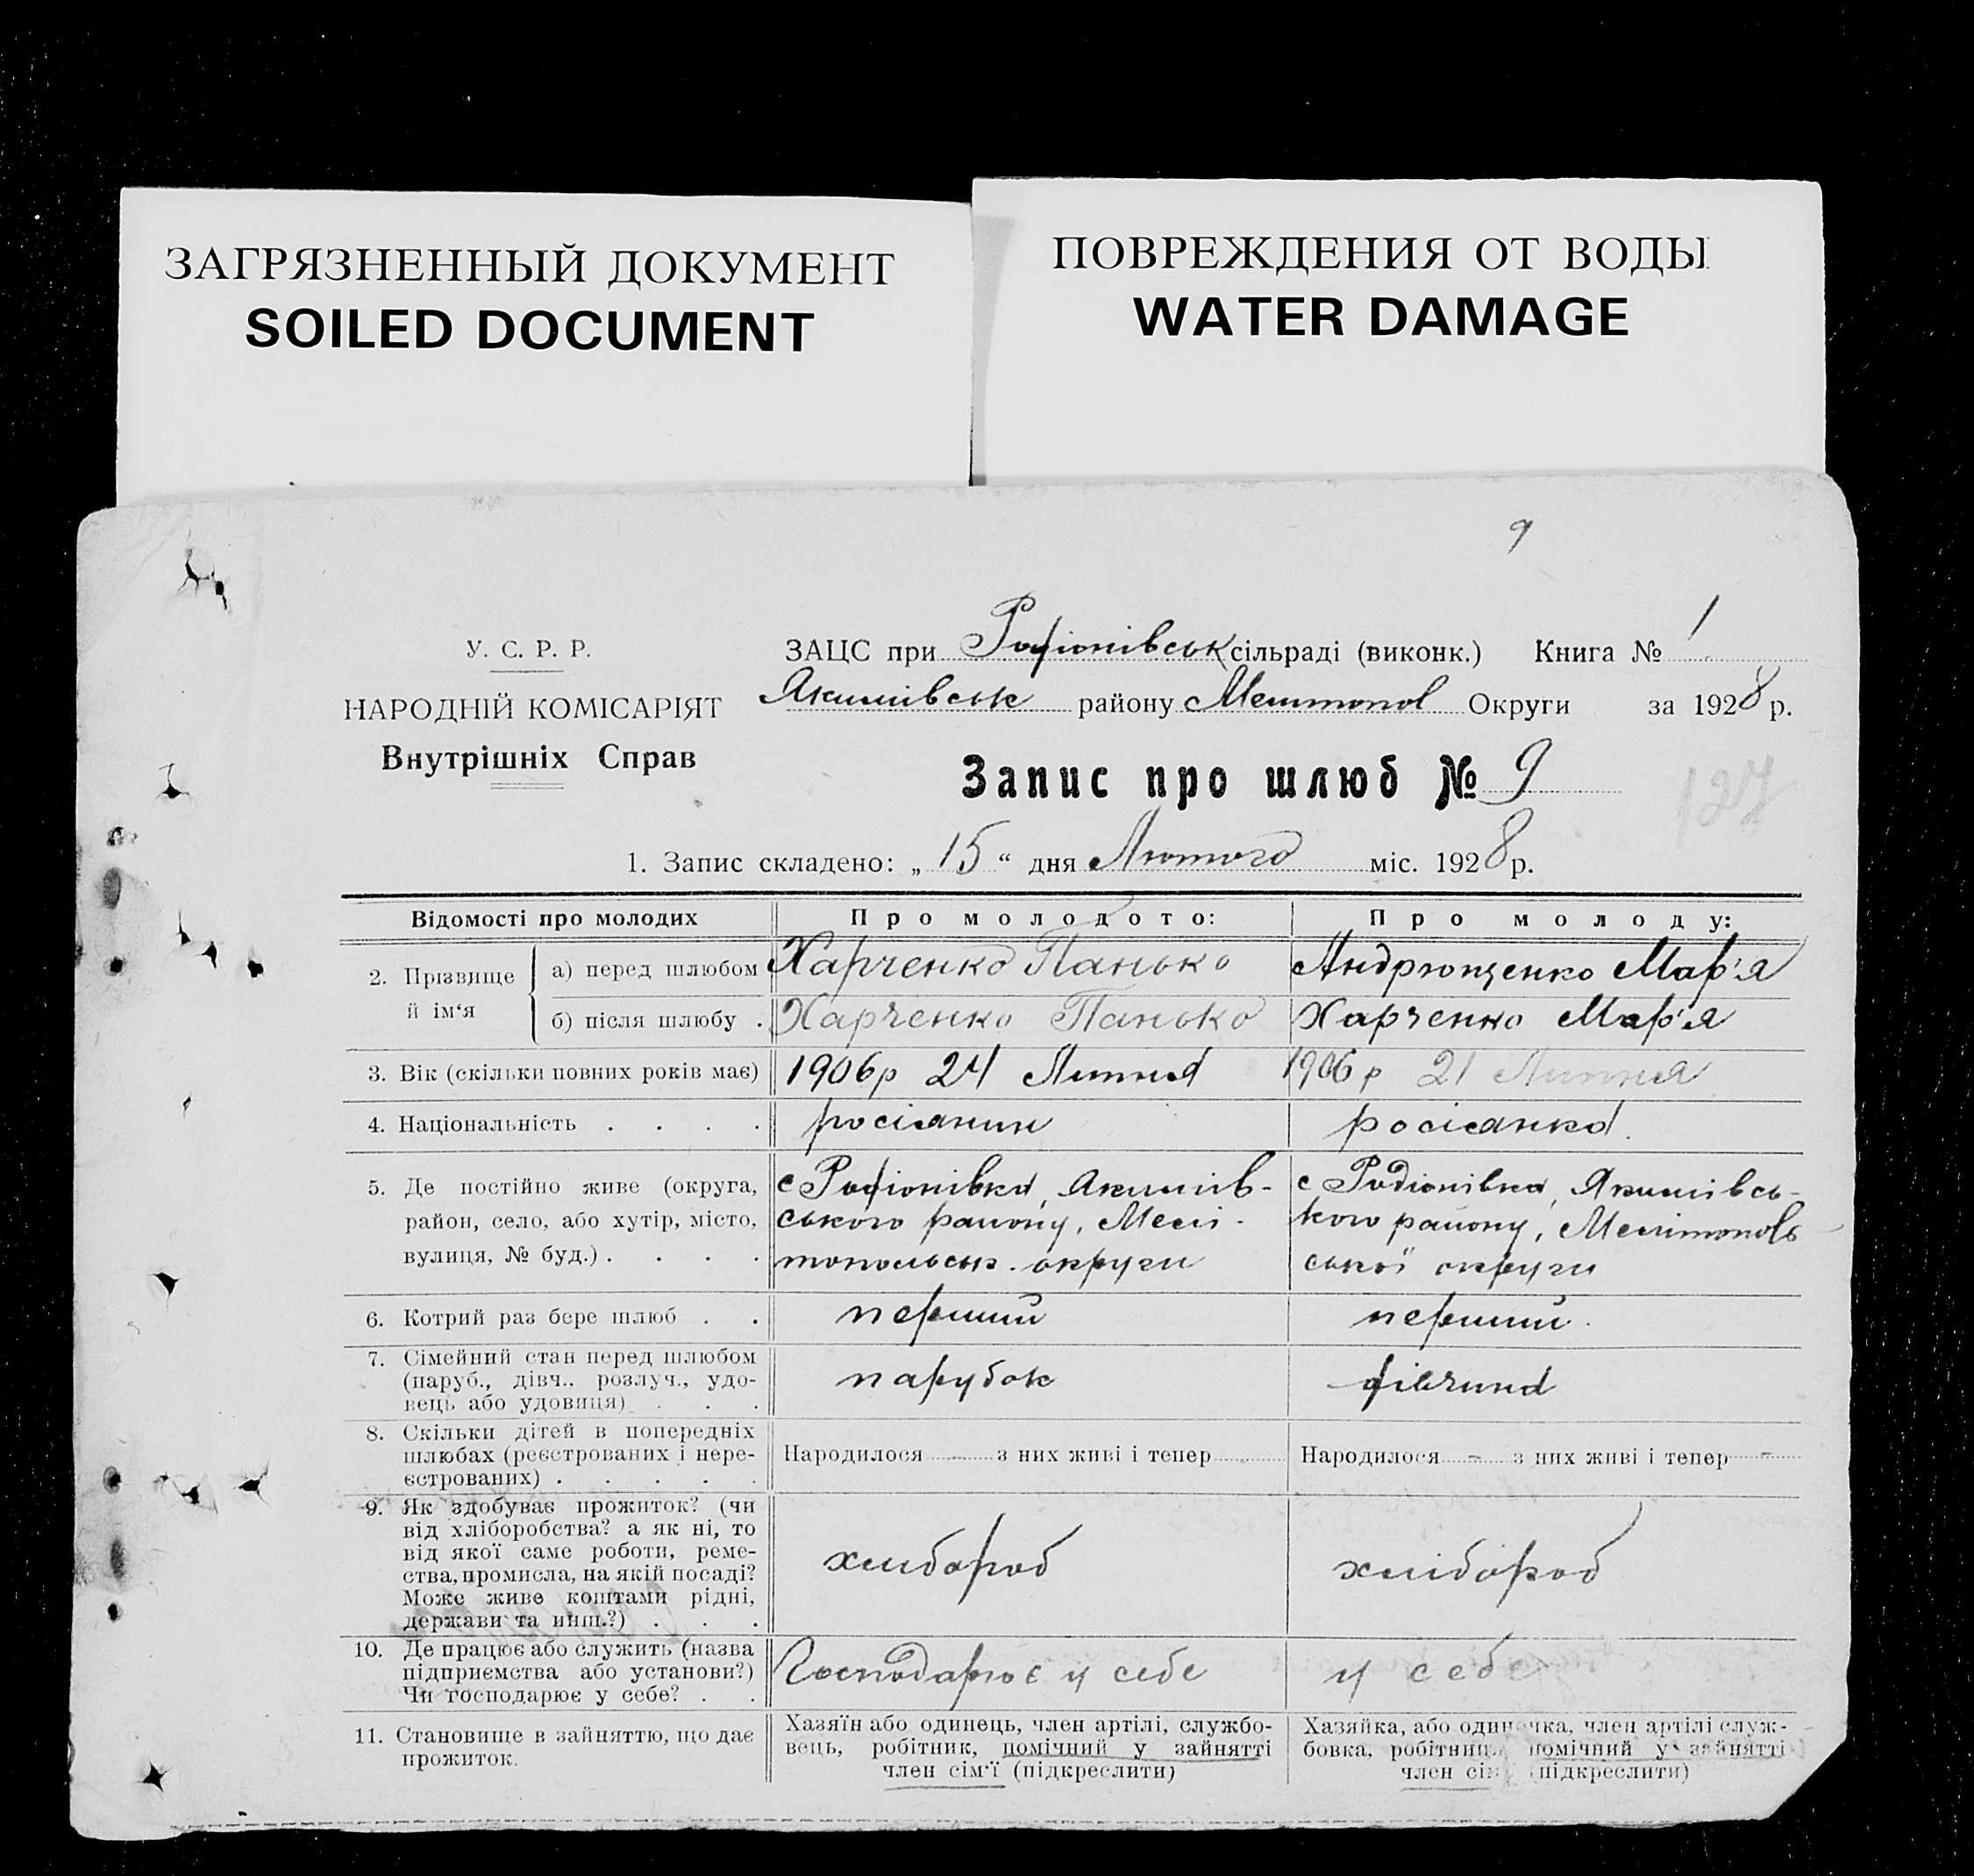 ЗАГРЯЗНЕННЫЙ ДОКУМЕНТ
SOILED DOCUMENT
ПОВРЕЖДЕНИЯ ОТ ВОДЫ
WATER DAMAGE
9
У. С. Р. Р.
НАРОДНІЙ КОМІСАРІЯТ
Внутрішніх Справ
ЗАЦС при Родіонівськ сільраді (виконк.) Книга № 1
Якимівськ району Мелітопол Округи за 1928 р.
Запис про шлюб № 9
127
1. Запис складено: „ 15 “ дня Лютого міс. 1928 р.
Відомості про молодих
Про молодого:
Про молоду:
2. Прізвище й ім‘я
а) перед шлюбом Харченко Панько Андрющенко Мар'я
б) після шлюбу . Харченко Панько Харченко Мар'я
3. Вік (скільки повних років має) 1906р 24 Липня 1906 р 21 Липня
4. Національність . . . . росіянин росіянка
5. Де постійно живе (округа,
район, село, або хутір, місто,
вулиця, № буд.) . . . .
с Родіонівка, Якимів-
ського району, Мелі-
топольськ. округи
с Родіонівка, Якимівсь-
кого району, Мелітополь
ської округи
6. Котрий раз бере шлюб . . перший перший
7. Сімейний стан перед шлюбом
(паруб., дівч., розлуч., удо-
вець або удовиця) . . .
парубок дівчина
8. Скільки дітей в попередніх
шлюбах (реєстрованих і нере-
єстрованих) . . . . .
Народилося — з них живі і тепер
Народилося – з них живі і тепер –
9. Як здобуває прожиток? (чи
від хліборобства? а як ні, то
від якої саме роботи, реме-
ства, промисла, на якій посаді?
Може живе коштами рідні,
держави та инш.?) . . .
хлібороб хлібороб
10. Де працює або служить (назва
підприємства або установи?)
Чи господарює у себе? . .
Господарює у себе у себе
11. Становище в зайняттю, що дає
прожиток.
Хазяїн або одинець, член артілі, службо-
вець, робітник, помічний у зайнятті
член сім‘ї (підкреслити)
Хазяйка, або одиначка, член артілі служ-
бовка, робітниця, помічний у зайнятті
член сім‘ї (підкреслити)